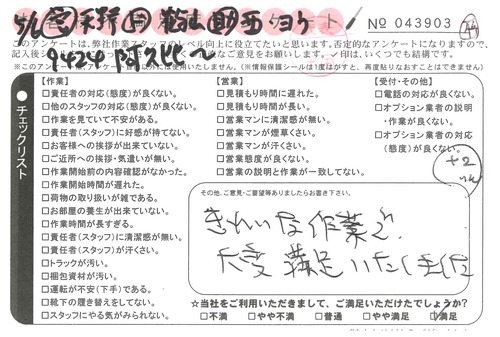 アンケート
№ 043903
このアンケートは、弊社作業スタッフのレベル向上に役立てたいと思います。否定的なアンケートになりますので、
記入後
ご意見をお願いします。
※このアンケートは、
以外には使用いたしません。(※情報保護シールは1度はがすと、再度貼りなおすことはできません)
チェックリスト
【作業】
□責任者の対応(態度)が良くない。
□他のスタッフの対応(態度)が良くない。
□作業を見ていて不安がある。
□責任者(スタッフ)に好感が持てない。
□お客様への挨拶が出来ていない。
□ご近所への挨拶・気遣いが無い。
□作業開始前の内容確認がなかった。
□作業開始時間が遅れた。
□荷物の取り扱いが雑である。
□お部屋の養生が出来ていない。
□作業時間が長すぎる。
□責任者(スタッフ)に清潔感が無い。
□責任者(スタッフ)が汗くさい。
□トラックが汚い。
□梱包資材が汚い。
□運転が不安(下手)である。
□靴下の履き替えをしてない。
□スタッフにやる気がみられない。
【営業】
□見積もり時間に遅れた。
□見積もり時間が長い。
□営業マンに清潔感が無い。
□営業マンが煙草くさい。
□営業マンが汗くさい。
□営業態度が良くない。
□営業の説明と作業が一致してない。
【受付・その他】
□電話の対応が良くない。
□オプション業者の説明
・作業が良くない。
□オプション業者の対応
(態度)が良くない。
その他、ご意見・ご要望等ありましたらお書き下さい。
きれいな作業で、
大変満足いたしました
☆当社をご利用いただきまして、ご満足いただけたでしょうか?
□不満 □やや不満 □普通 □やや満足 □満足